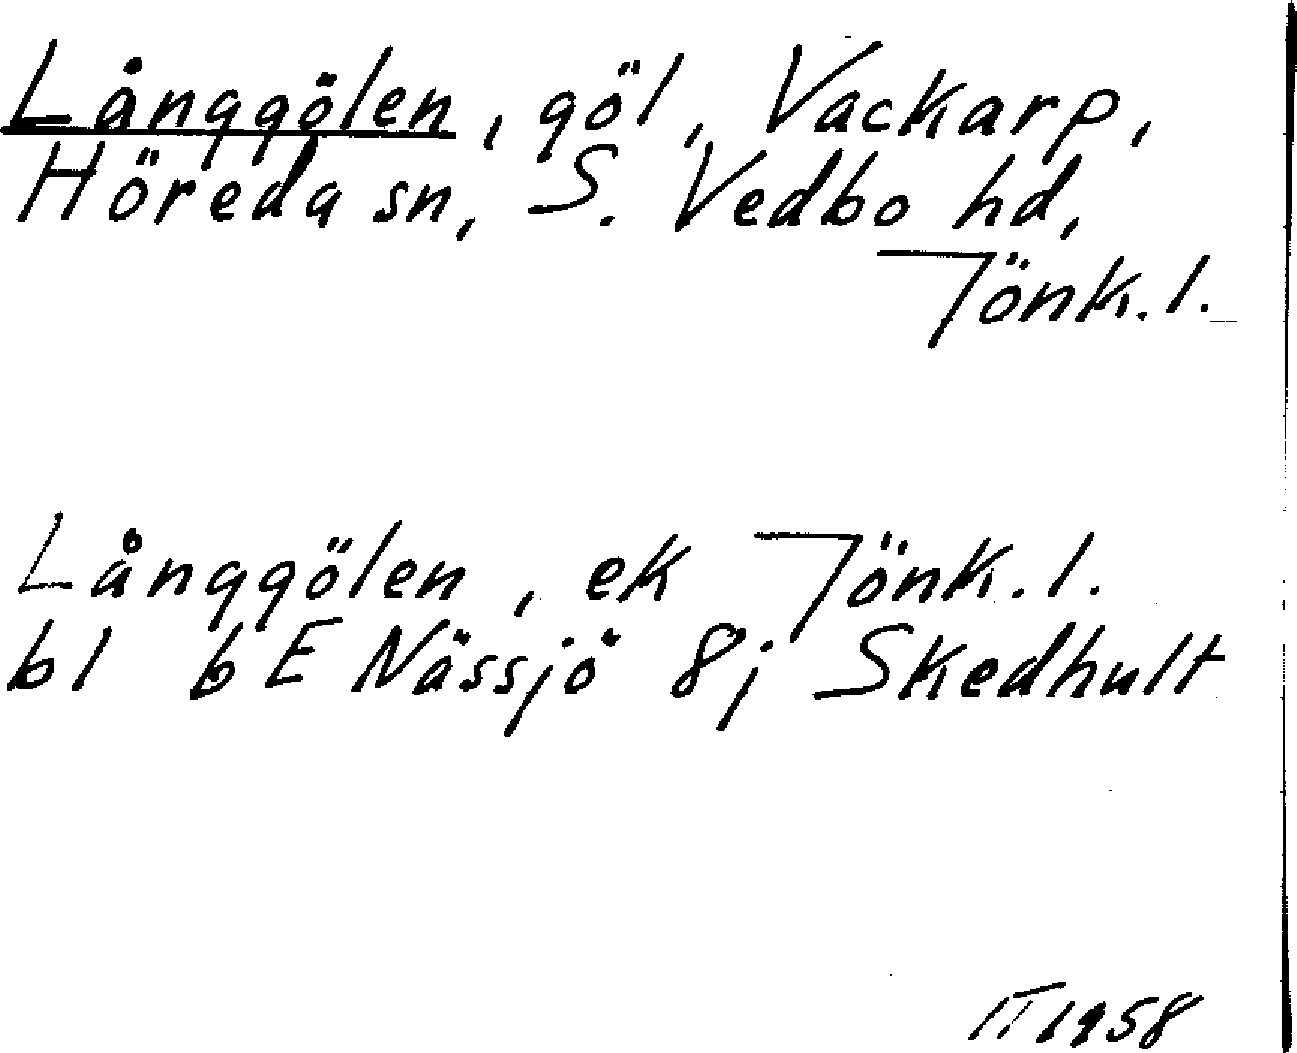 Långgölen, göl, Vackarp,
Höreda sn, S. Vedbo hd,
Jönk. l.
Långgölen, ek Jönk. l.
bl 6E Nässjö 8j Skedhult
IT 1958